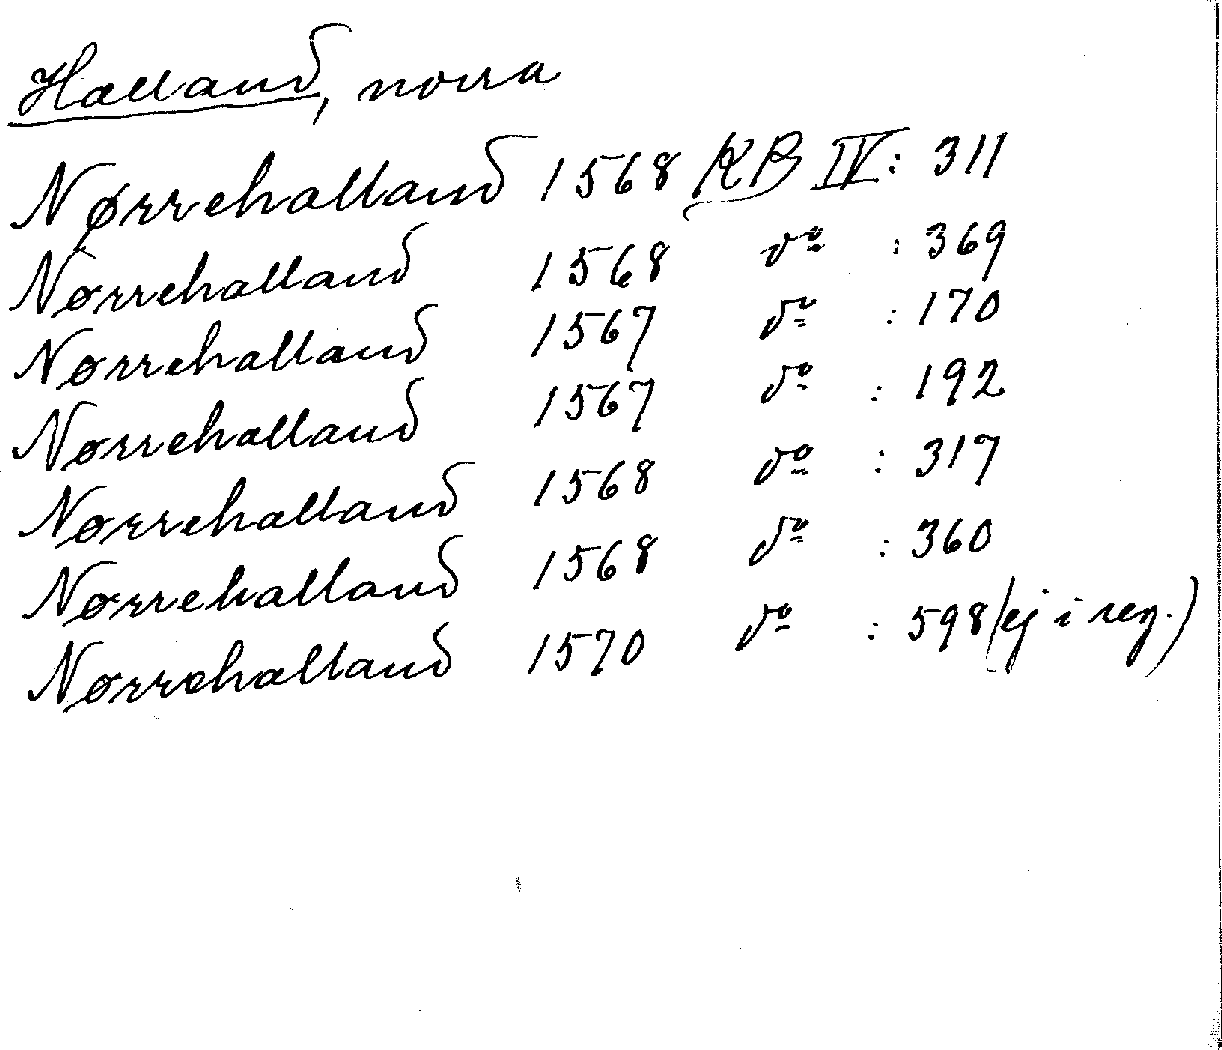 Halland, norra
Nørrehalland 1568 KB IV: 311
Nørrehalland 1568 do : 369
Nørrehalland 1567 do : 170
Nørrehalland 1567 do : 192
Nørrehalland 1568 do : 317
Nørrehalland 1568 do : 360
Nørrehalland 1570 do : 598 (ej i reg.)